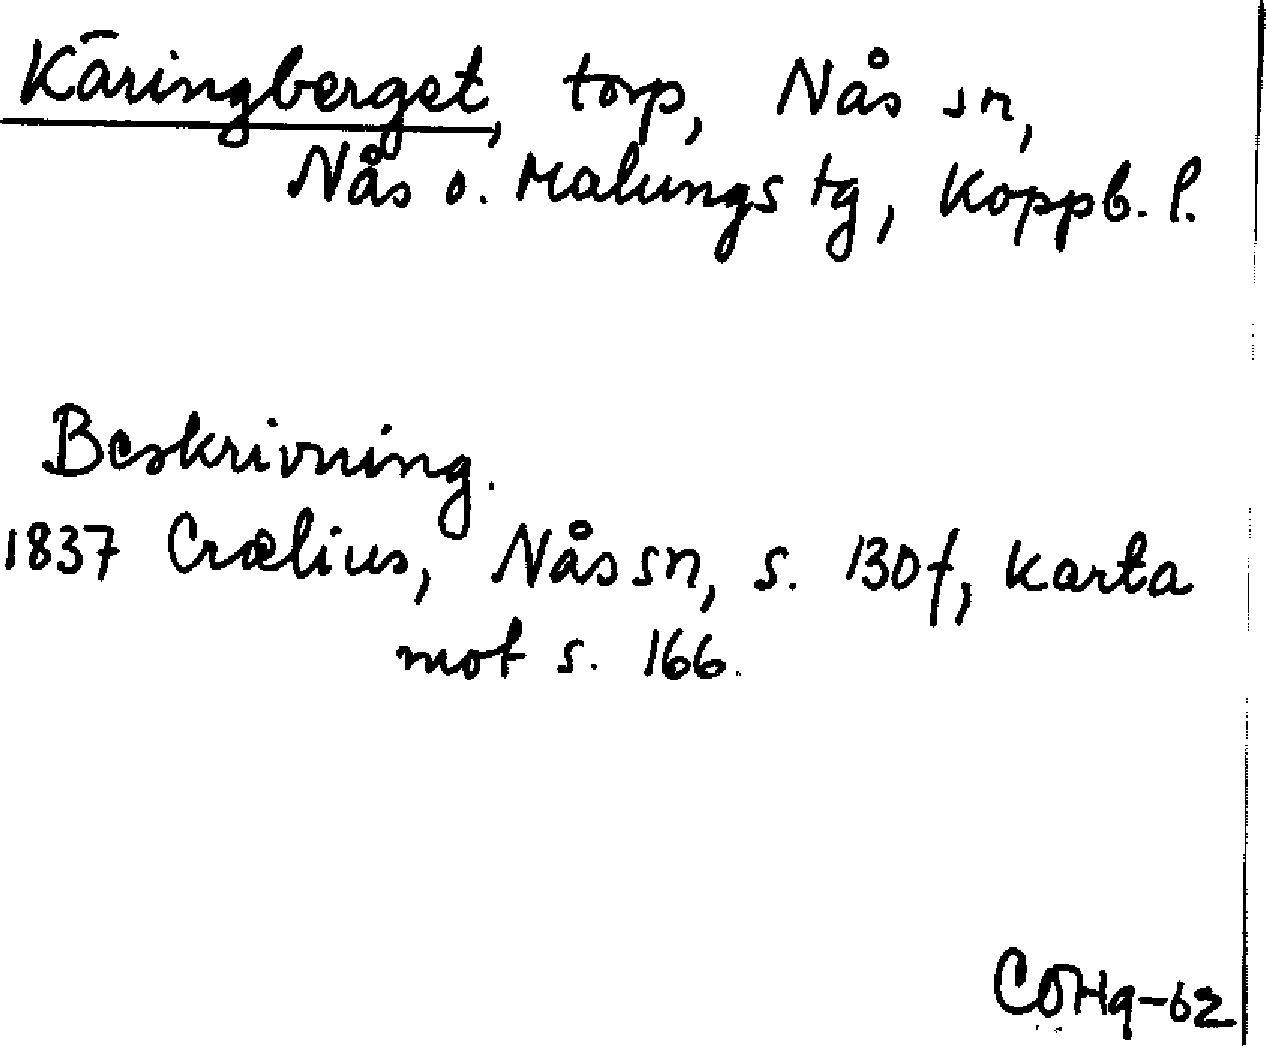 Käringberget, torp, Nås sn,
Nås o. Malungs tg, Koppb. l.
Beskrivning.
1837 Crælius, Nås sn, s. 130f, karta
mot s. 166.
COHq-62